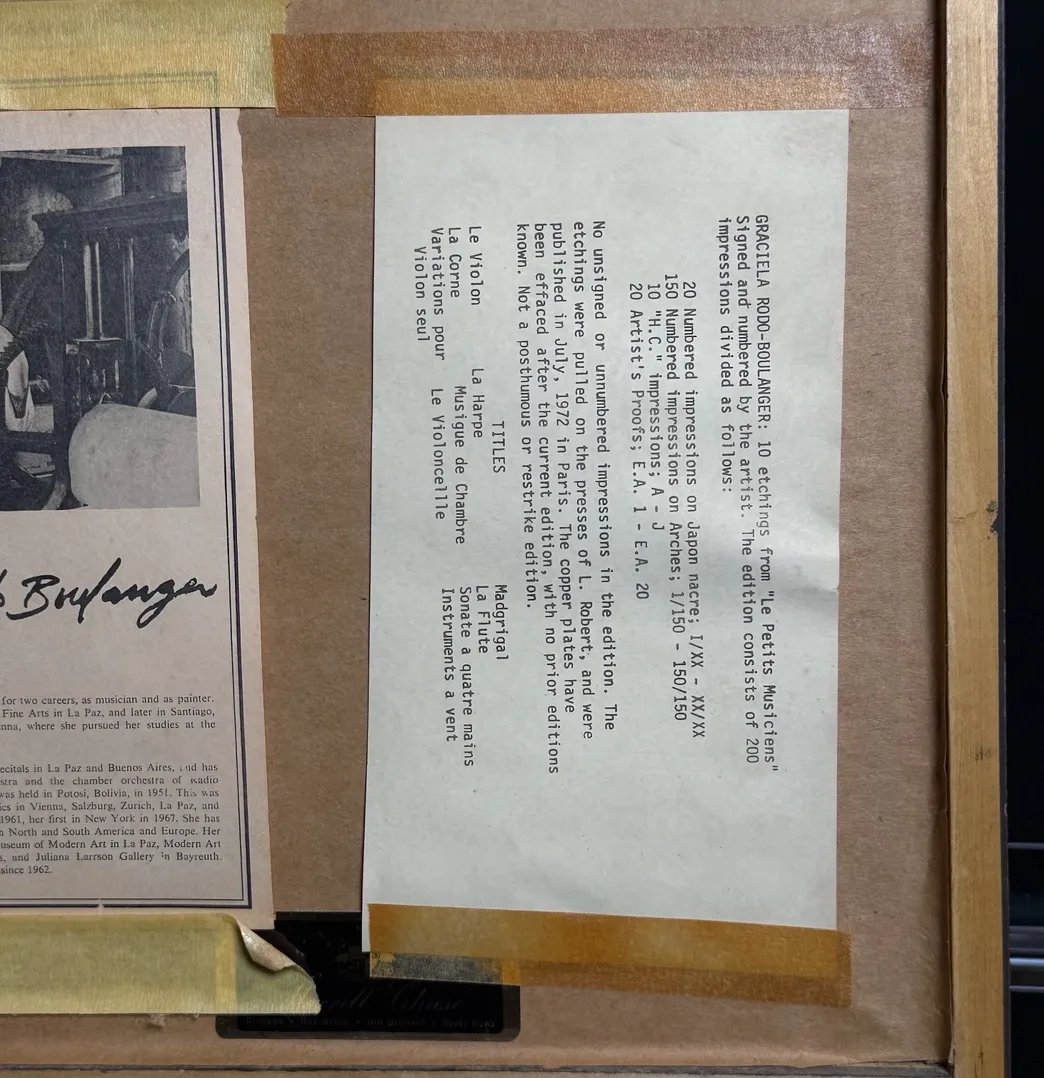 Boulanger
for two careers, as musician and as painter.
Fine Arts in La Paz, and later in Santiago,
nna, where she pursued her studies at the
ecitals in La Paz and Buenos Aires, and has
stra and the chamber orchestra of Radio
was held in Potosi, Bolivia, in 1951. This was
ics in Vienna, Salzburg, Zurich, La Paz, and
1961, her first in New York in 1967. She has
n North and South America and Europe. Her
useum of Modern Art in La Paz, Modern Art
s, and Juliana Larrson Gallery in Bayreuth.
since 1962.
GRACIELA RODO-BOULANGER: 10 etchings from "Le Petits Musiciens"
Signed and numbered by the artist. The edition consists of 200
impressions divided as follows:
20 Numbered impressions on Japon nacre; I/XX - XX/XX
150 Numbered impressions on Arches; 1/150 - 150/150
10 "H.C." impressions; A - J
20 Artist's Proofs; E.A. 1 - E.A. 20
No unsigned or unnumbered impressions in the edition. The
etchings were pulled on the presses of L. Robert, and were
published in July, 1972 in Paris. The copper plates have
been effaced after the current edition, with no prior editions
known. Not a posthumous or restrike edition.
TITLES
Le Violon La Harpe Madgrigal
La Corne Musique de Chambre La Flute
Variations pour Le Violoncellle Sonate a quatre mains
Violon seul Instruments a vent
Chase